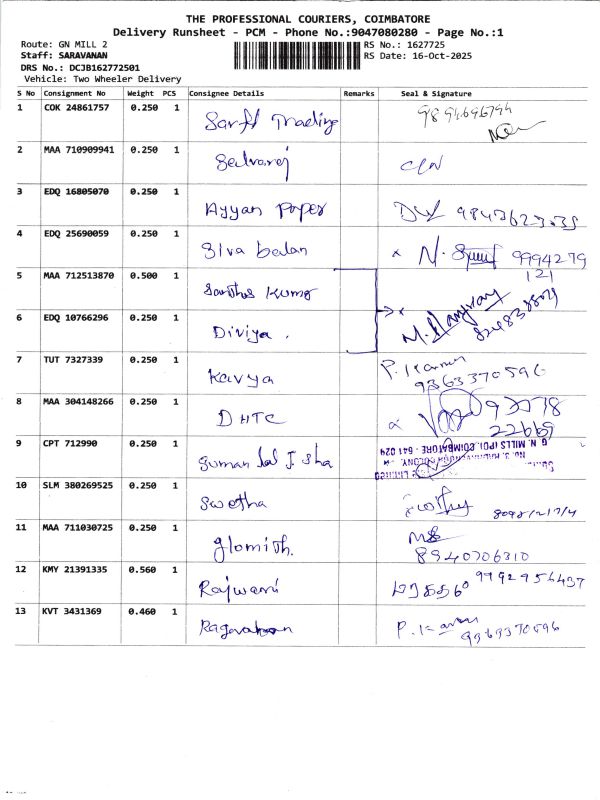 THE PROFESSIONAL COURIERS, COIMBATORE
Delivery Runsheet - PCM - Phone No.:9047080280 - Page No.:1
Route: GN MILL 2
RS No.: 1627725
Staff: SARAVANAN
RS Date: 16-Oct-2025
DRS No.: DCJB162772501
Vehicle: Two Wheeler Delivery
S No Consignment No Weight PCS Consignee Details Remarks Seal & Signature
1 COK 24861757 0.250 1 Trading
2 MAA 710909941 0.250 1 Selvaraj
3 EDQ 16805070 0.250 1 Ayyan Paper
4 EDQ 25690059 0.250 1 Siva balan 9994279
121
5 MAA 712513870 0.500 1 Kumo
6 EDQ 10766296 0.250 1 Diviya.
7 TUT 7327339 0.250 1 Kavya
9363370596
8 MAA 304148266 0.250 1 DHTC 93778
22669
9 CPT 712990 0.250 1 Suman lal J. sha
G. N. MILLS (PO), COIMBATORE - 641 029
10 SLM 380269525 0.250 1 Swetha
11 MAA 711030725 0.250 1
8940706310
12 KMY 21391335 0.560 1 Rajwani
13 KVT 3431369 0.460 1